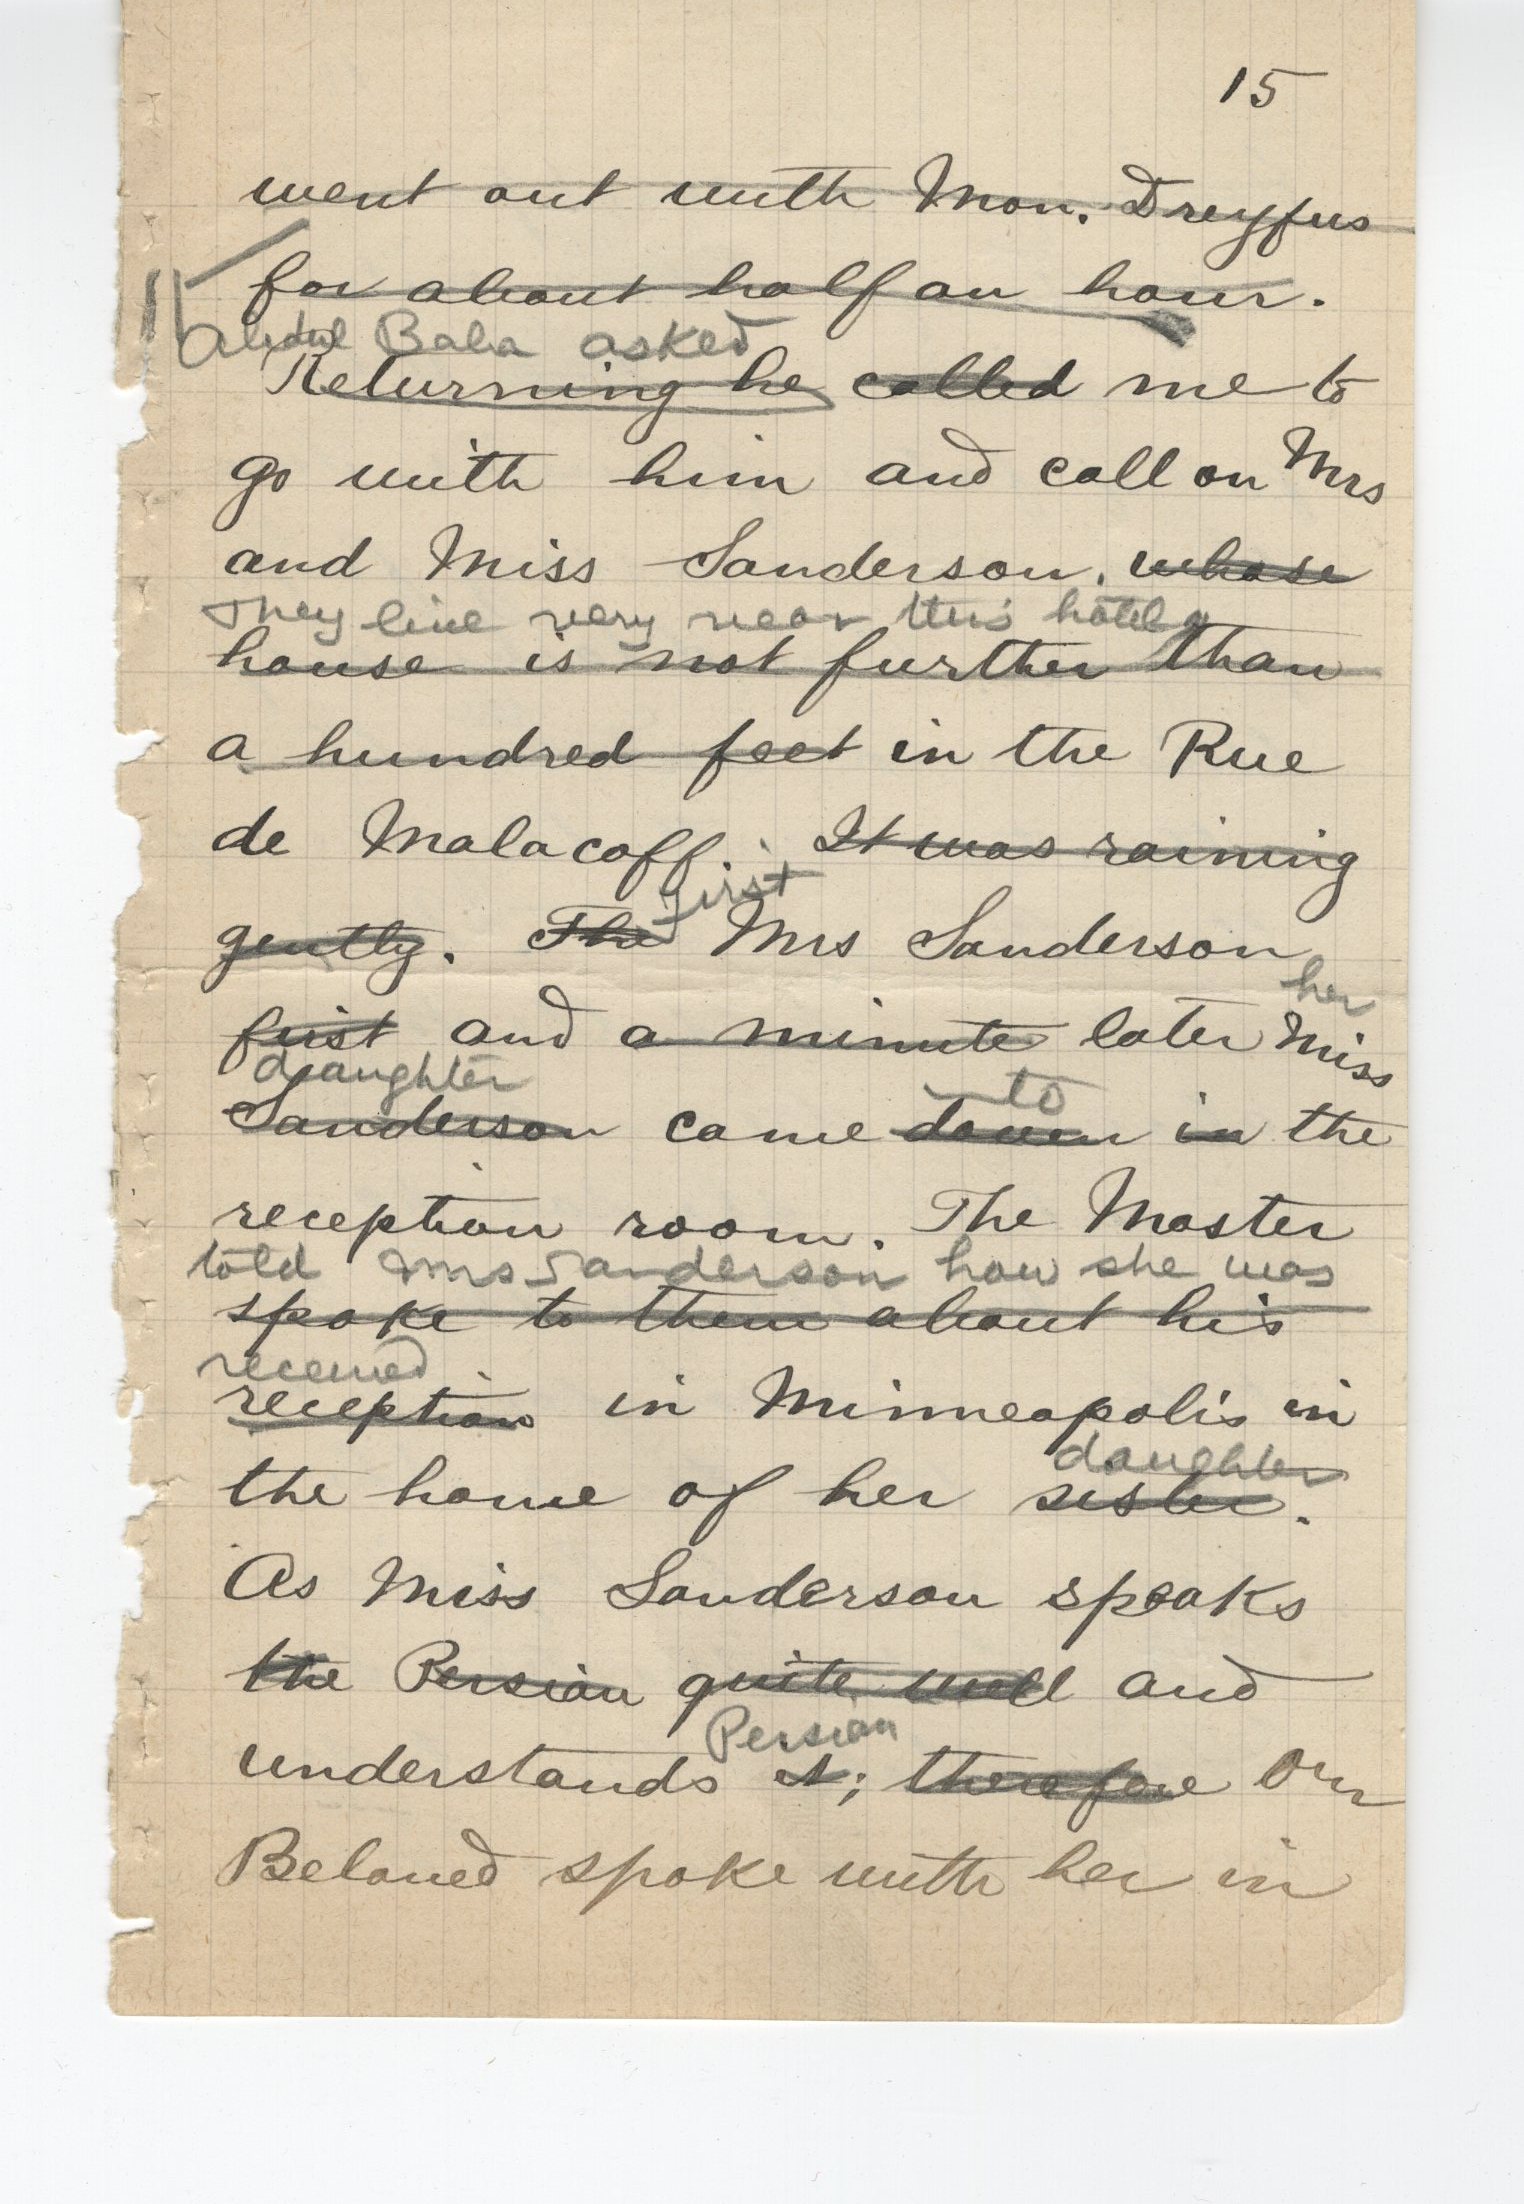 15
went out with Mon. Dreyfus
for about half an hour.
Abdul Baha asked
Returning he called me to
go with him and call on Mrs
and Miss Sanderson. whose
They live very near this hotel
house is not further than
a hundred feet in the Rue
de Malacoff. It was raining
First
gently. The Mrs Sanderson
her
first and a minute later Miss
daughter
to
Sanderson came down in the
reception room. The Master
told Mrs Sanderson how she was
spoke to them about his
received
reception in Minneapolis in
daughter
the home of her sister.
As Miss Sanderson speaks
the Persian quite well and
Persian
understands it; therefore Our
Beloved spoke with her in